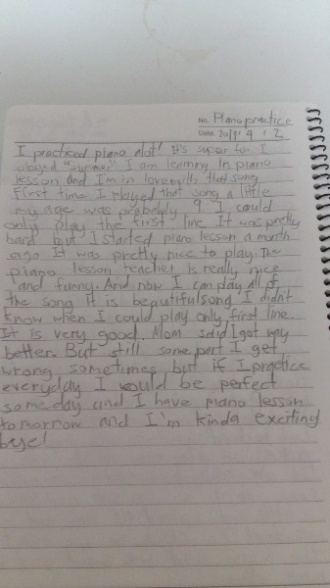 No. Piano practice
Date 2019 . 4 . 2
I practiced piano alot! It's super fun I
played "summer" I am learning in piano
lesson and I'm in love with that song
First time I played that song a little
my age was probably 9 I could
only play the first line It was pretty
hard but I started piano lesson a month
ago It was pretty nice to play. The
piano lesson teacher is really nice
and funny. And now I can play all of
the song it is beautiful song I didn't
know when I could play only first line.
It is very good. Mom said I got way
better. But still some part I get
wrong sometimes but if I practice
everyday I would be perfect
someday and I have piano lesson
tomorrow and I'm kinda exciting
bye!